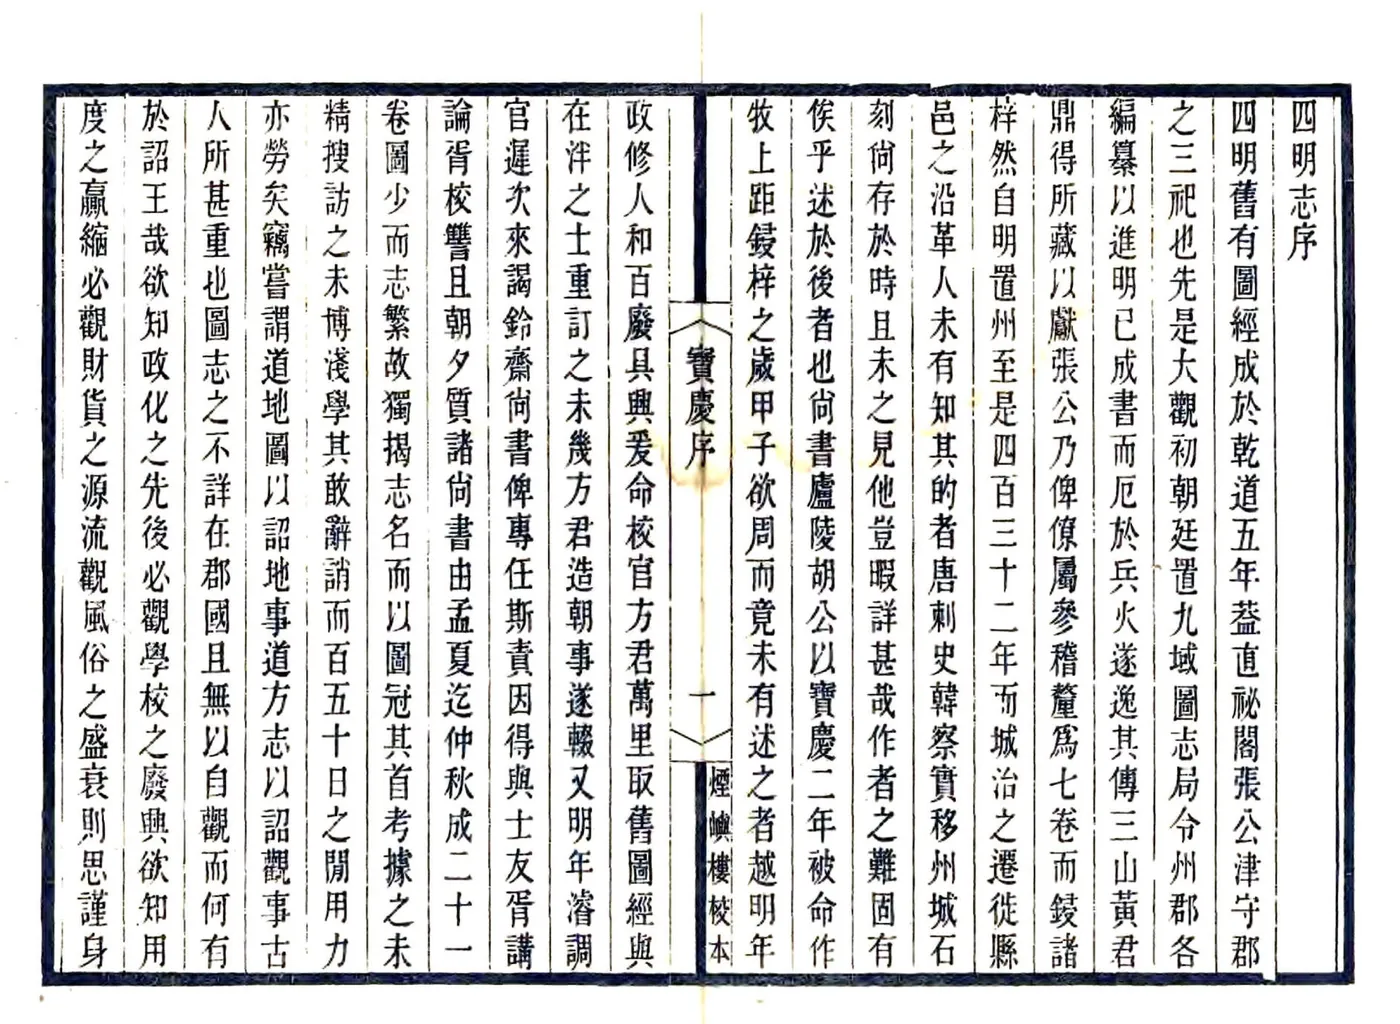 四明志序
四明舊有圖經成於乾道五年葢直祕閣張公津守郡
之三祀也先是大觀初朝廷置九域圖志局令州郡各
編纂以進明已成書而厄於兵火遂逸其傳三山黃君
鼎得所藏以獻張公乃俾僚屬參稽釐爲七卷而鋟諸
梓然自明置州至是四百三十二年而城治之遷徙縣
邑之沿革人未有知其的者唐刺史韓察實移州城石
刻尙存於時且未之見他豈暇詳甚哉作者之難固有
俟乎述於後者也尙書廬陵胡公以寶慶二年被命作
牧上距鋟梓之歲甲子欲周而竟未有述之者越明年
寶慶序
一
煙嶼樓校本
政修人和百廢具興爰命校官方君萬里取舊圖經與
在泮之士重訂之未幾方君造朝事遂輟又明年濬調
官遲次來謁鈴齋尙書俾專任斯責因得與士友胥講
論胥校讐且朝夕質諸尙書由孟夏迄仲秋成二十一
卷圖少而志繁故獨揭志名而以圖冠其首考據之未
精搜訪之未博淺學其敢辭誚而百五十日之閒用力
亦勞矣竊嘗謂道地圖以詔地事道方志以詔觀事古
人所甚重也圖志之不詳在郡國且無以自觀而何有
於詔王哉欲知政化之先後必觀學校之廢興欲知用
度之贏縮必觀財貨之源流觀風俗之盛衰則思謹身